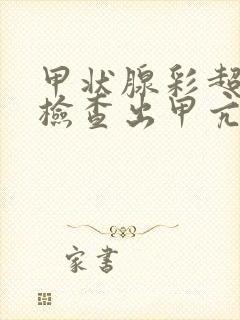 甲状腺彩超
檢查出甲亢
家書